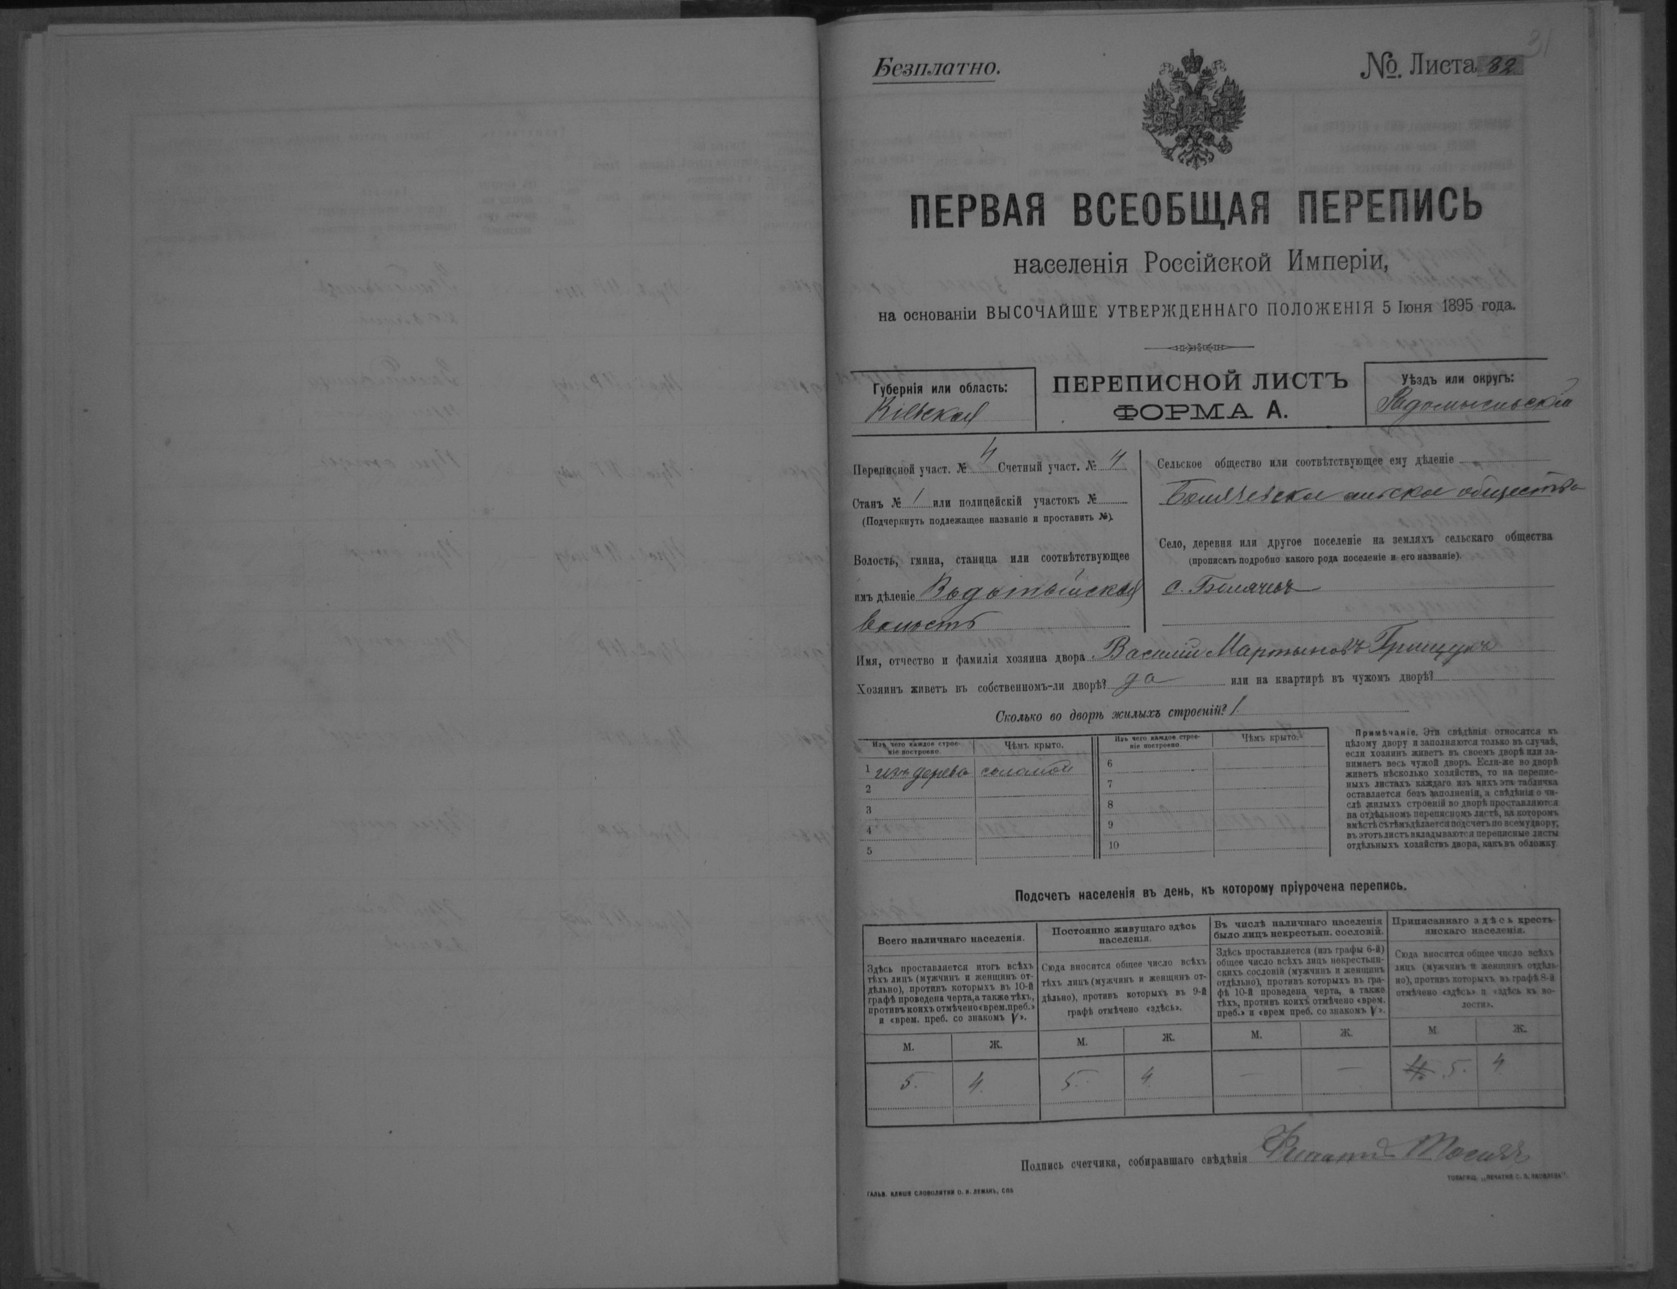 31
Безплатно.
№. Листа 32
ПЕРВАЯ ВСЕОБЩАЯ ПЕРЕПИСЬ
населенія Россійской Имперіи,
на основаніи ВЫСОЧАЙШЕ УТВЕРЖДЕННАГО ПОЛОЖЕНІЯ 5 Іюня 1895 года.
Губернія или область:
Кіевская
ПЕРЕПИСНОЙ ЛИСТЪ
ФОРМА А.
Уѣздъ или округъ:
Радомысльскій
Переписной участ. № 4 Счетный участ. № 4
Станъ № 1 или полицейскій участокъ №
(Подчеркнуть подлежащее названіе и проставить №).
Волость, гмина, станица или соотвѣтствующее
имъ дѣленіе Водотыйская
волость
Сельское общество или соотвѣтствующее ему дѣленіе
общество
Село, деревня или другое поселеніе на земляхъ сельскаго общества
(прописать подробно какого рода поселеніе и его названіе).
с.
Имя, отчество и фамилія хозяина двора Василій Мартыновъ Грищукъ
Хозяинъ живетъ въ собственномъ-ли дворѣ? да или на квартирѣ въ чужомъ дворѣ?
Сколько во дворѣ жилыхъ строеній? 1.
Изъ чего каждое строеніе построено. Чѣмъ крыто. Изъ чего каждое строеніе построено Чѣмъ крыто.
1 изъ дерева соломой 6
2 7
3 8
4 9
5 10
Примѣчаніе. Эти свѣдѣнія относятся къ
цѣлому двору и заполняются только въ случаѣ,
если хозяинъ живетъ въ своемъ дворѣ или занимаетъ
весь чужой дворъ. Если-же во дворѣ
живетъ нѣсколько хозяйствъ, то на переписныхъ
листахъ каждаго изъ нихъ эта табличка
оставляется безъ заполненія, а свѣдѣнія о числѣ
жилыхъ строеній во дворѣ проставляются
на отдѣльномъ переписномъ листѣ, на которомъ
вмѣстѣ съ тѣмъ дѣлается подсчетъ по всему двору;
въ этотъ листъ вкладываются переписные листы
отдѣльныхъ хозяйствъ двора, какъ въ обложку
Подсчетъ населенія въ день, къ которому пріурочена перепись.
Всего наличнаго населенія.
Здѣсь проставляется итогъ всѣхъ
тѣхъ лицъ (мужчинъ и женщинъ отдѣльно),
противъ которыхъ въ 10-й
графѣ проведена черта, а также тѣхъ,
противъ коихъ отмѣчено «врем. преб.»
и «врем. преб. со знакомъ V».
Постоянно живущаго здѣсь
населенія.
Сюда вносится общее число всѣхъ
тѣхъ лицъ (мужчинъ и женщинъ отдѣльно),
противъ которыхъ въ 9-й
графѣ отмѣчено «здѣсь».
Въ числѣ наличнаго населенія
было лицъ некрестьян. сословій.
Здѣсь проставляется (изъ графы 6-й)
общее число всѣхъ лицъ некрестьянскихъ
сословій (мужчинъ и женщинъ
отдѣльно), противъ которыхъ въ графѣ
10-й проведена черта, а также
тѣхъ, противъ коихъ отмѣчено «врем.
преб.» и «врем преб. со знакомъ V».
Приписаннаго здѣсь крестьянскаго
населенія.
Сюда вносится общее число всѣхъ
лицъ (мужчинъ и женщинъ отдѣльно),
противъ которыхъ въ графѣ 8-й
отмѣчено «здѣсь» и «здѣсь въ волости».
М. Ж. М. Ж. М. Ж. М. Ж.
5. 4. 5. 4 — — 5. 4
Подпись счетчика, собиравшаго свѣдѣнія
ГАЛЬВ. КЛИШЕ СЛОВОЛИТНИ О. И. ЛЕМАНЪ, СПБ
ТОВАРИЩ. „ПЕЧАТНЯ С. П. ЯКОВЛЕВА"